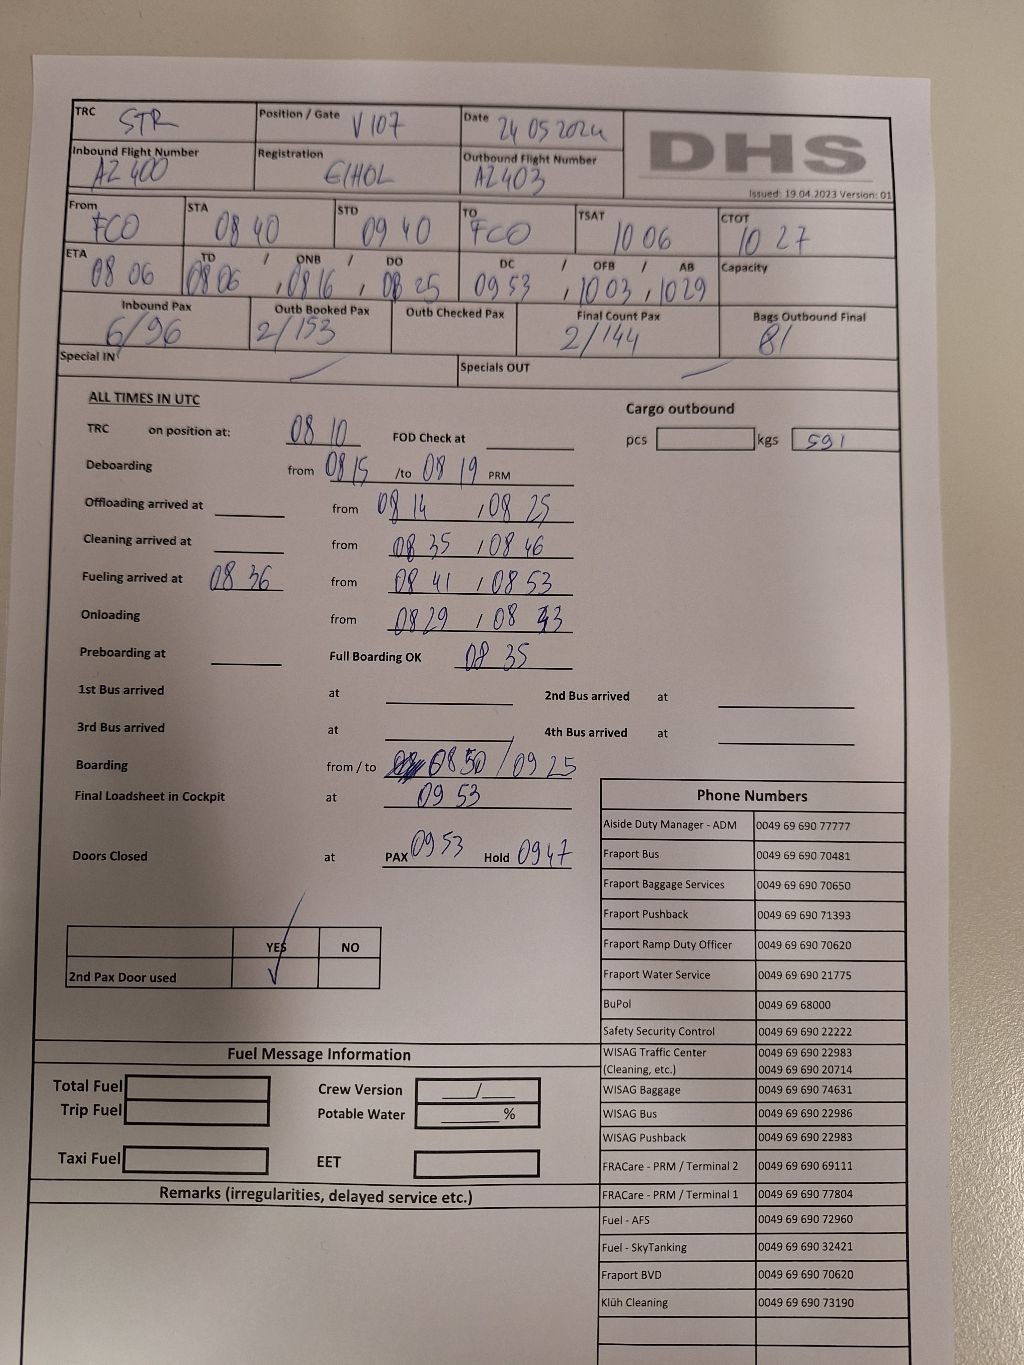 TRC STR Position / Gate V107 Date 24 05 2024 DHS
Inbound Flight Number AZ 400 Registration EIHOL Outbound Flight Number AZ403
Issued: 19.04.2023 Version: 01
From FCO STA 08 40 STD 09 40 TO FCO TSAT 10 06 CTOT 10 27
ETA 08 06 TD / ONB / DO 08 06 , 08 16 , 08 25 DC / OFB / AB 09 53 , 10 03 , 10 29 Capacity
Inbound Pax 6/96 Outb Booked Pax 2/153 Outb Checked Pax Final Count Pax 2/144 Bags Outbound Final 81
Special IN Specials OUT
ALL TIMES IN UTC
Cargo outbound
TRC on position at: 08 10 FOD Check at pcs kgs 591
Deboarding from 0815 /to 08 19 PRM
Offloading arrived at from 08 14 , 08 25
Cleaning arrived at from 08 35 , 08 46
Fueling arrived at 08 36 from 08 41 , 08 53
Onloading from 0829 , 08
Preboarding at Full Boarding OK 08 35
1st Bus arrived at 2nd Bus arrived at
3rd Bus arrived at 4th Bus arrived at
Boarding from / to 0850 / 09 25
Final Loadsheet in Cockpit at 09 53
Doors Closed at PAX 0953 Hold 0947
YES NO
2nd Pax Door used
Fuel Message Information
Total Fuel Crew Version ___/___
Trip Fuel Potable Water _____%
Taxi Fuel EET
Remarks (irregularities, delayed service etc.)
Phone Numbers
Aiside Duty Manager - ADM 0049 69 690 77777
Fraport Bus 0049 69 690 70481
Fraport Baggage Services 0049 69 690 70650
Fraport Pushback 0049 69 690 71393
Fraport Ramp Duty Officer 0049 69 690 70620
Fraport Water Service 0049 69 690 21775
BuPol 0049 69 68000
Safety Security Control 0049 69 690 22222
WISAG Traffic Center 0049 69 690 22983
(Cleaning, etc.) 0049 69 690 20714
WISAG Baggage 0049 69 690 74631
WISAG Bus 0049 69 690 22986
WISAG Pushback 0049 69 690 22983
FRACare - PRM / Terminal 2 0049 69 690 69111
FRACare - PRM / Terminal 1 0049 69 690 77804
Fuel - AFS 0049 69 690 72960
Fuel - SkyTanking 0049 69 690 32421
Fraport BVD 0049 69 690 70620
Klüh Cleaning 0049 69 690 73190